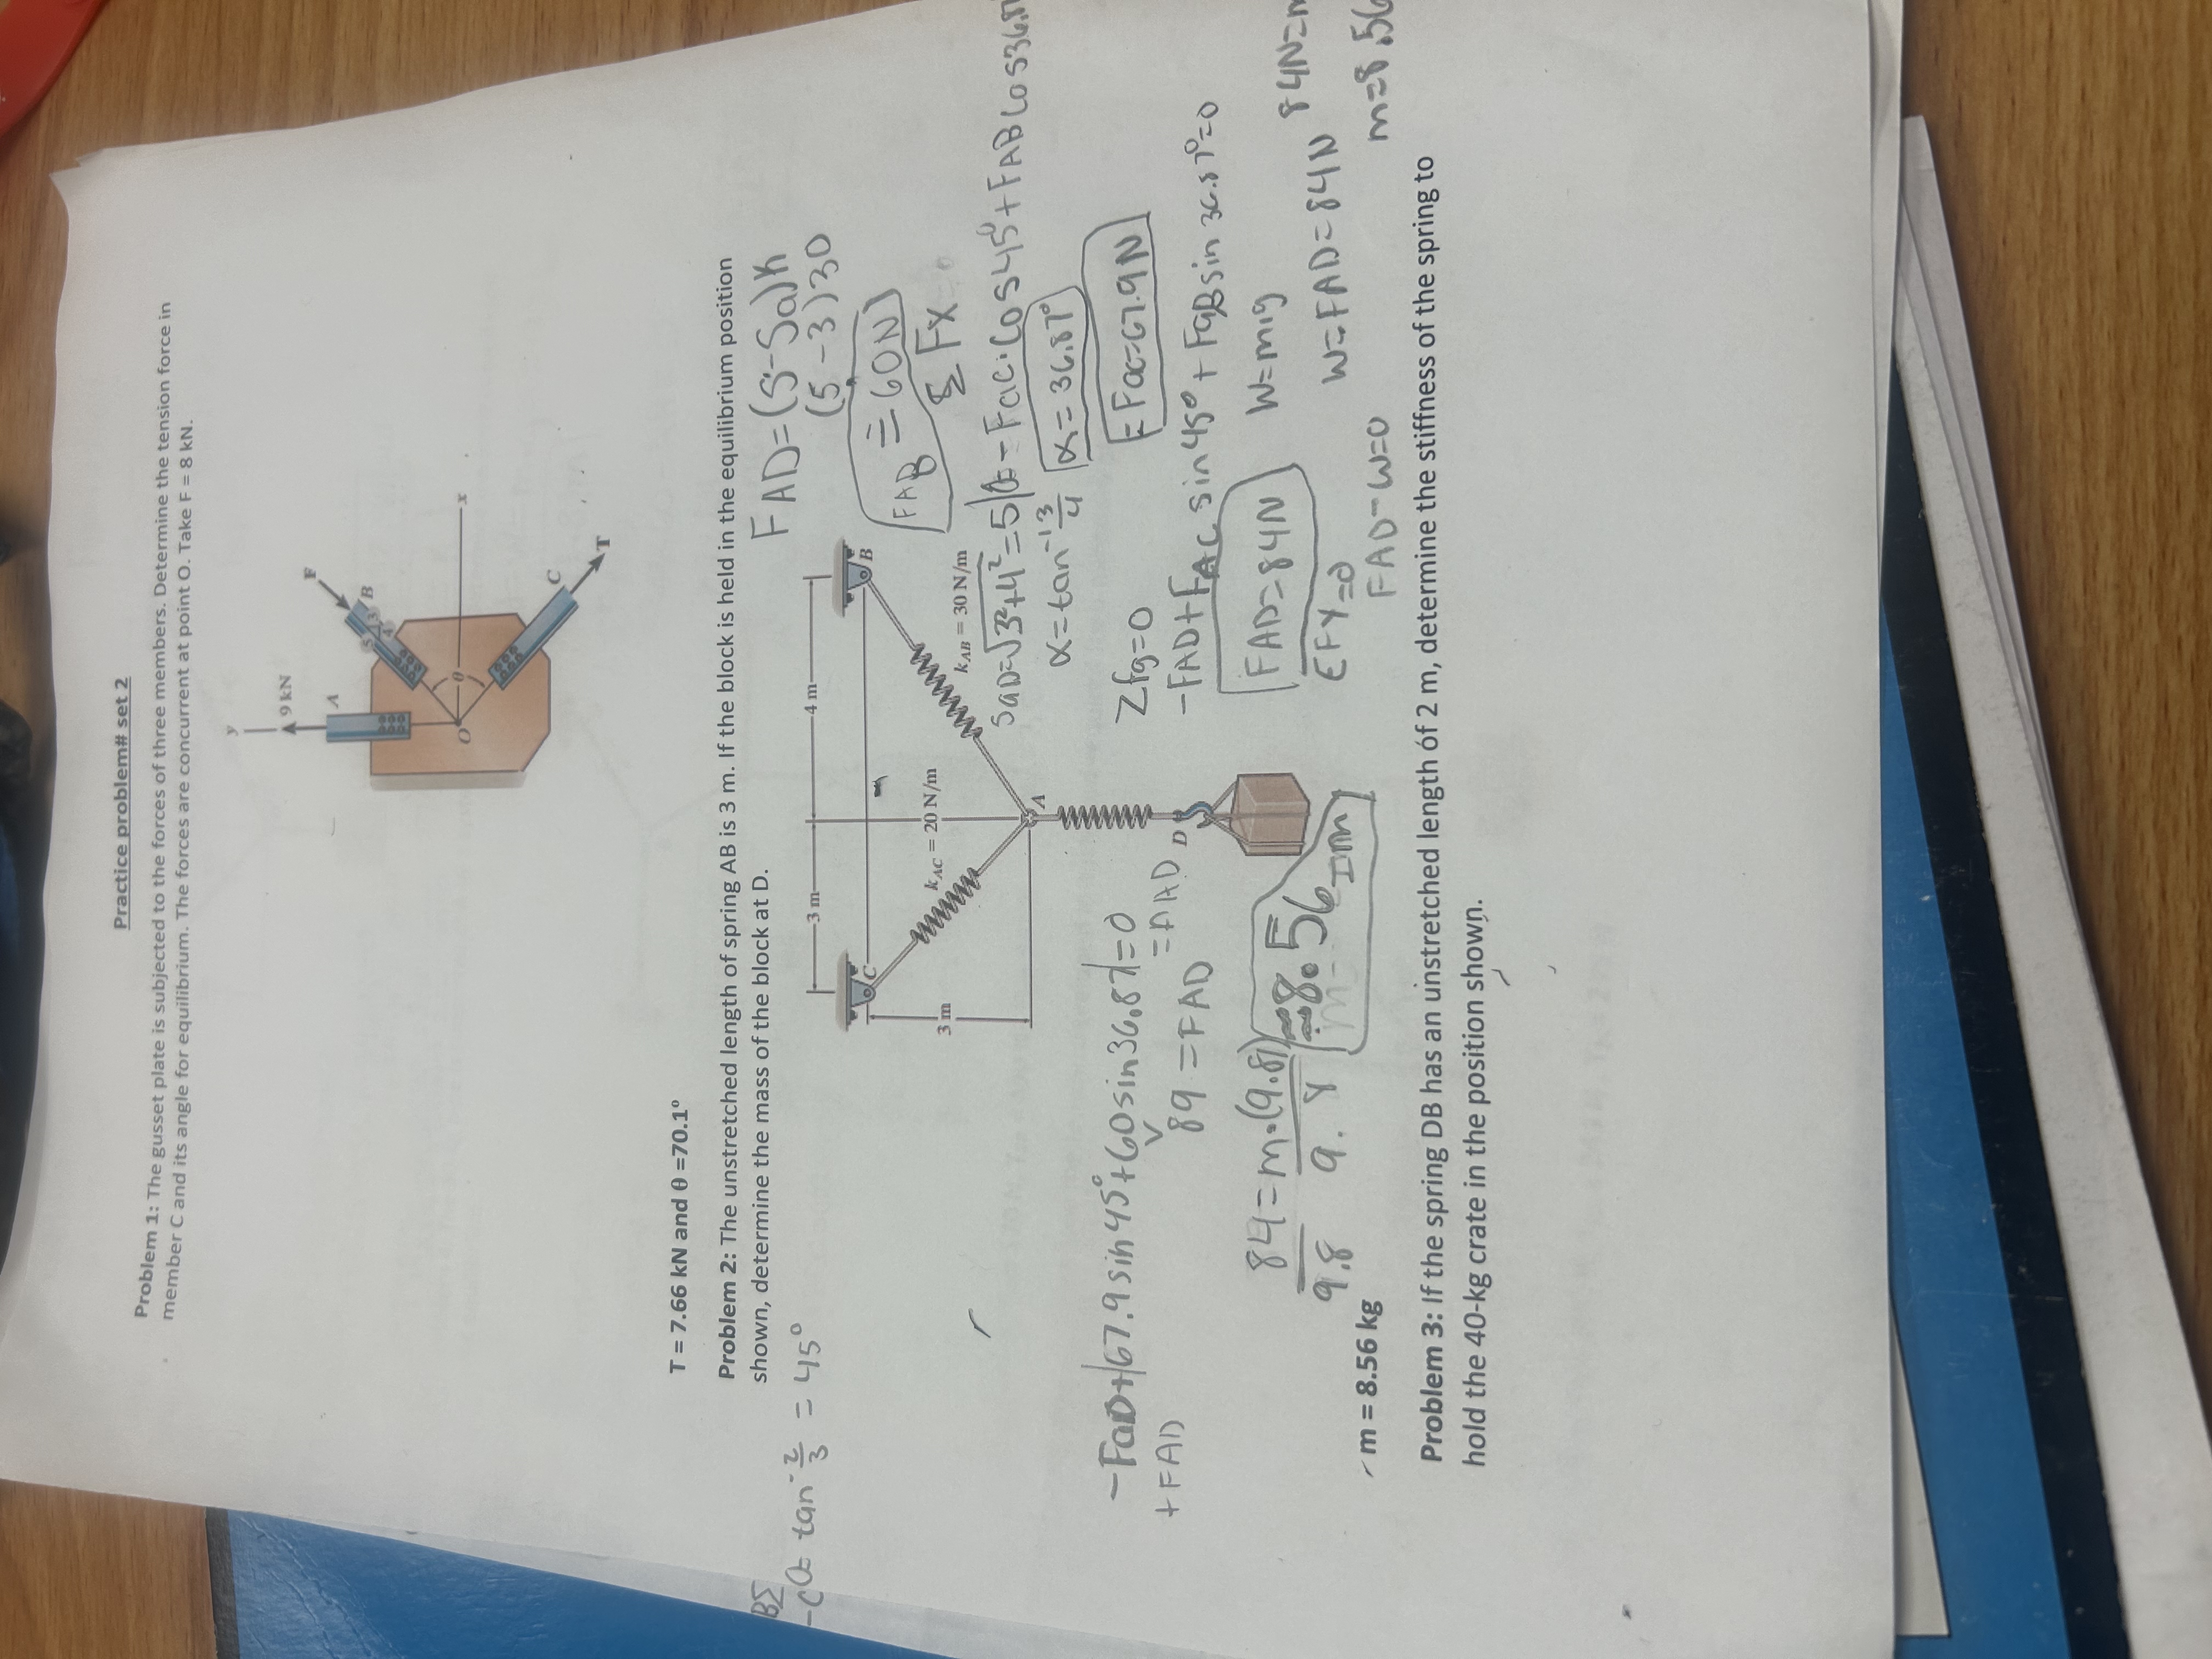 Practice problem# set 2
Problem 1: The gusset plate is subjected to the forces of three members. Determine the tension force in
member C and its angle for equilibrium. The forces are concurrent at point O. Take F = 8 kN.
y
9 kN
A
F
B
5
3
4
x
O
θ
C
T
T = 7.66 kN and θ =70.1°
Problem 2: The unstretched length of spring AB is 3 m. If the block is held in the equilibrium position
shown, determine the mass of the block at D.
tan⁻ 3/3 = 45°
FAD=(S-Sa)K
(5-3)30
FAB = 60N
Σ Fx
3 m
4 m
C
B
3 m
kAC = 20 N/m
kAB = 30 N/m
A
D
SaD=√3²+4²=5
-Fac·Cos45°+FAB Cos36.87
α=tan⁻¹ 3/4
α=36.87°
=Fac=67.9N
Σfg=0
-FAD+FAC sin45°+FaB sin36.87°=0
FAD=84N
W=m·g
ΣFY=0
W=FAD=84N
84N=m
FAD-W=0
m=8.56
-FaD+67.9sin45°+60sin36.87=0
+FAD
89=FAD
84=m·(9.81)
9.8
8.56
m = 8.56 kg
Problem 3: If the spring DB has an unstretched length of 2 m, determine the stiffness of the spring to
hold the 40-kg crate in the position shown.